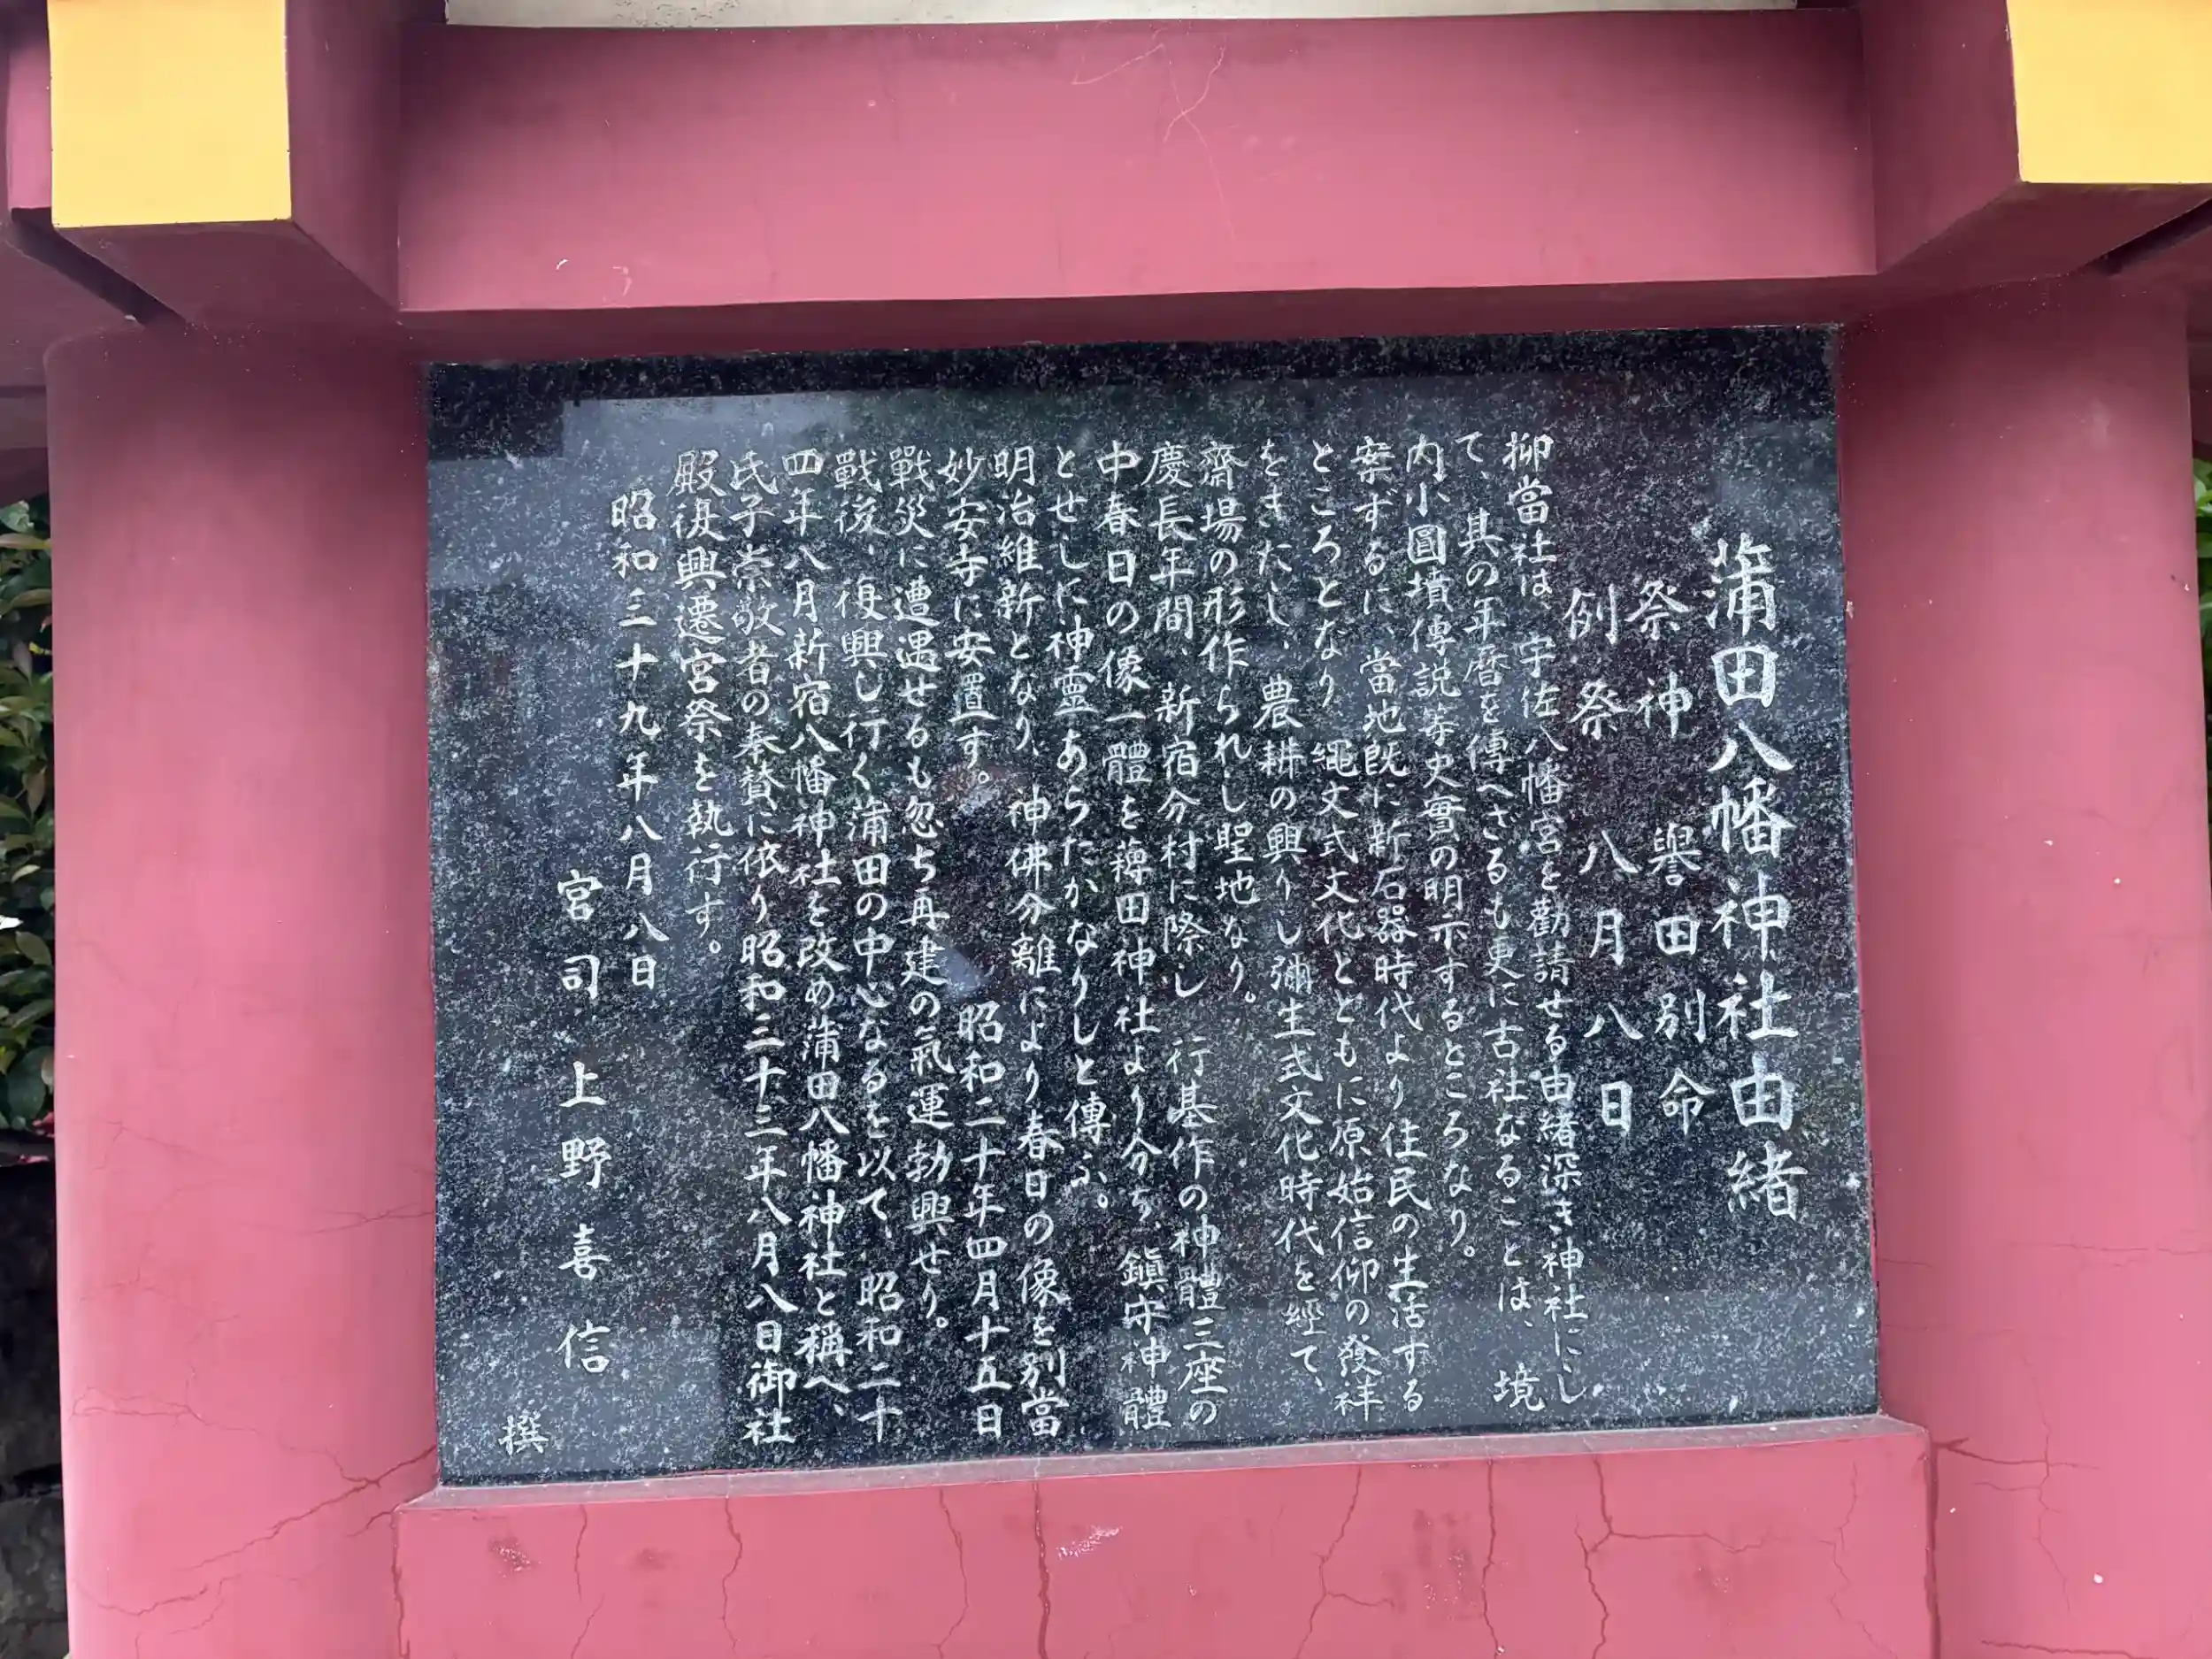 蒲田八幡神社由緒
祭神 譽田別命
例祭 八月八日
抑當社は、宇佐八幡宮を勸請せる由緒深き神社にし
て、其の年暦を傳へざるも更に古社なることは、境
内小圓墳傳説等史實の明示するところなり。
案ずるに、當地既に新石器時代より住民の生活する
ところとなり、繩文式文化とともに原始信仰の發祥
をきたし、農耕の興りし彌生式文化時代を經て、
齋場の形作られし聖地なり。
慶長年間、新宿分村に際し 行基作の神體三座の
中春日の像一體を薭田神社より分ち、鎭守神體
とせしに神靈あらたかなりしと傳ふ。
明治維新となり、神佛分離により春日の像を別當
妙安寺に安置す。 昭和二十年四月十五日
戰災に遭遇せるも忽ち再建の氣運勃興せり。
戰後、復興し行く蒲田の中心なるを以て、昭和二十
四年八月新宿八幡神社を改め蒲田八幡神社と稱へ、
氏子崇敬者の奉贊に依り昭和三十三年八月八日御社
殿復興遷宮祭を執行す。
昭和三十九年八月八日
宮司 上野喜信
撰